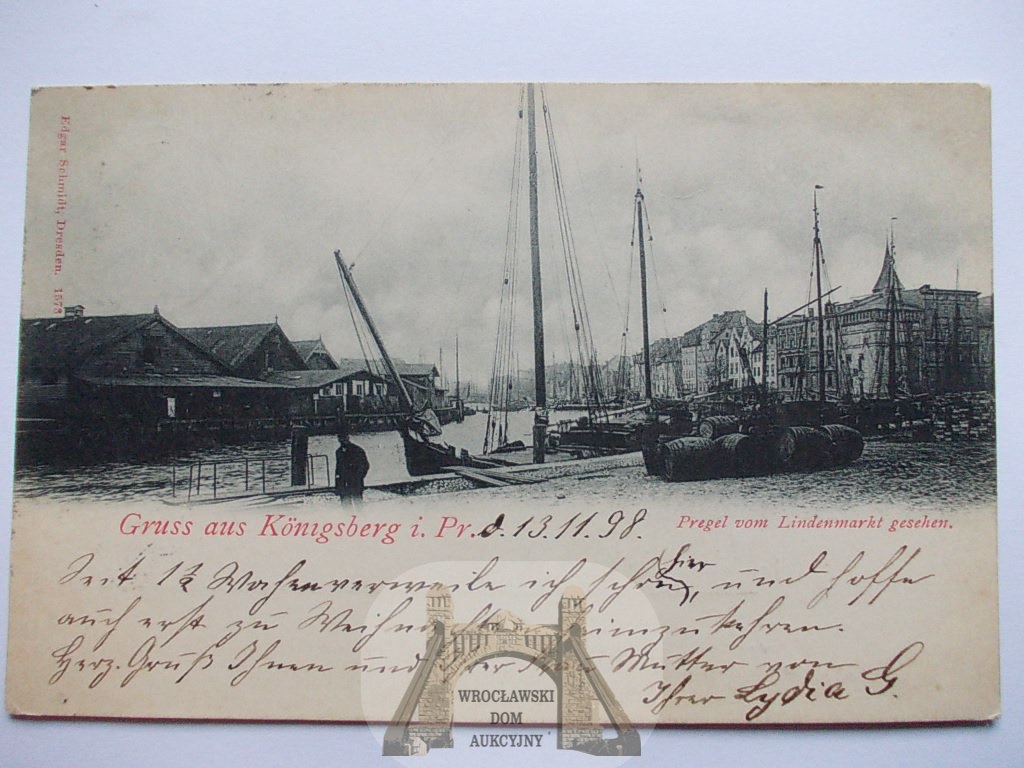 Edgar Schmidt, Dresden. 1573
Gruss aus Königsberg i. Pr. d. 13.11.98.
Pregel vom Lindenmarkt gesehen.
Seit 1½ Wochen verweile ich schon hier, und hoffe
auch erst zu Weihnachten heimzukehren.
Herz. Gruß Ihnen und Ihrer Frau Mutter von
Ihrer Lydia G.
WROCŁAWSKI
DOM
AUKCYJNY